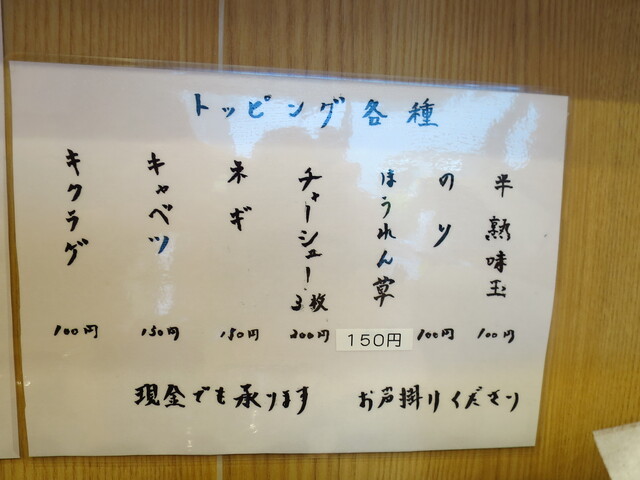 トッピング各種
半熟味玉 100円
のり 100円
ほうれん草 150円
チャーシュー3枚 200円
ネギ 150円
キャベツ 150円
キクラゲ 100円
現金でも承ります お声掛けください